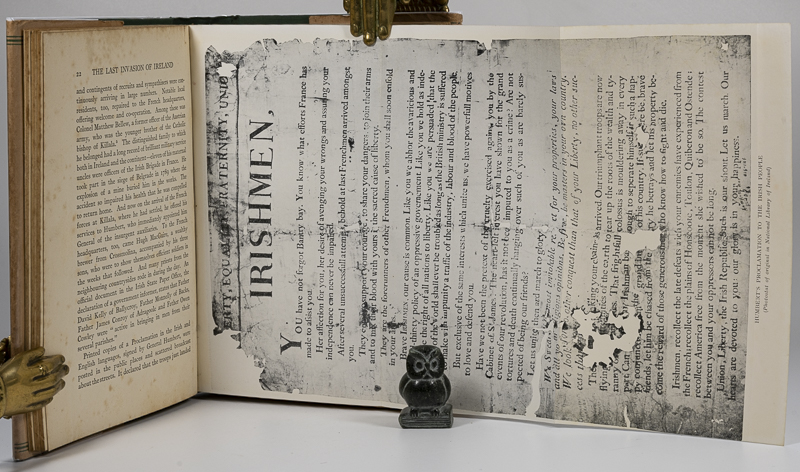 22 THE LAST INVASION OF IRELAND
and contingents of recruits and sympathisers were con-
tinuously arriving in large numbers. Notable local
residents, too, repaired to the French headquarters,
offering welcome and cooperation. Among them was
Colonel Matthew Bellew, a former officer of the Austrian
army, who was the younger brother of the Catholic
bishop of Killala. The distinguished family to which
he belonged had a long record of brilliant military service
both in Ireland and the continent—eleven of his maternal
uncles were officers of the Irish Brigade in France. He
took part in the siege of Belgrade in 1789 when the
explosion of a mine buried him in the ruins. The
accident so impaired his health that he was compelled
to return home. And now on the arrival of the French
forces at Killala, where he had settled, he offered his
services to Humbert, who immediately appointed him
General of the insurgent auxiliaries. To the French
headquarters, too, came Hugh Maguire, a wealthy
brewer from Crossmolina, accompanied by his
sons, who were to show themselves efficient soldiers in
the weeks that followed. And many priests from the
neighbouring countryside
official document in the Irish State Paper Office, the
declaration of a government informer, mentions Father
David Kelly of Ballysokery, Father Monnelly of Backs,
Father James Conroy of Adragool and Father Owen
Cowley as active in bringing in men from their
several parishes."
Printed copies of a Proclamation in the Irish and
English languages, signed by General Humbert, were
posted in the public places and scattered broadcast
about the streets. It declared that the troops just landed
LIBERTY, EQUALITY, FRATERNITY, UNION
IRISHMEN,
YOU have not forgot Bantry bay. You know what efforts France has
made to assist you.
Her affection for you, her desire of avenging your wrongs and assuring your
independence can never be impaired.
After several unsuccessful attempts, behold at last Frenchmen arrived amongst
you.
They come to support your courage, to share your dangers, to join their arms
and to mix their blood with yours in the sacred cause of liberty.
They are the forerunners of other Frenchmen, whom you shall soon enfold
in your arms.
Brave Irishmen, our cause is common. Like you we abhor the avaricious and
blood-thirsty policy of an oppressive government. Like you we hold as inde-
feasible the right of all nations to liberty. Like you we are persuaded that the
peace of the world shall ever be troubled as long as the British ministry is suffered
to make with impunity a traffic of the industry, labour and blood of the people.
But exclusive of the same interests which unite us, we have powerful motives
to love and defend you.
Have we not been the pretext of the cruelty exercised against you by the
Cabinet of St. James's? The heart-felt interest you have shown for the grand
events of our revolution, has it not been imputed to you as a crime? Are not
tortures and death continually hanging over such of you as are barely sus-
pected of being our friends?
Let us unite then and march to glory.
We swear the most inviolable respect for your properties, your laws
and all your religious opinions. Be free, be masters in your own country.
We look for no other conquest than that of your Liberty, no other suc-
cess than
your chains is arrived. Our triumphant troops are now
flying to the extremities of the earth to tear up the roots of the wealth and ty-
ranny of our enemies. That frightful colossus is mouldering away in every
part. Can any Irishman be enough to separate himself such a hap-
py conjuncture the grand of his country. If so there be, brave
friends, let him be chased from the he betrays and let his property be-
come the reward of those generous men who know how to fight and die.
Irishmen, recollect the late defeats which your enemies have experienced from
the French; recollect the plains of Honscoote, Toulon, Quiberon and Ostende;
recollect America free from the moment she wished to be so. The contest
between you and your oppressors cannot be long.
Union, Liberty, the Irish Republic, such is our shout. Let us march. Our
hearts are devoted to you: our glory is in your happiness.
HUMBERT'S PROCLAMATION TO THE IRISH PEOPLE
(Photostat of original in National Library of Ireland)